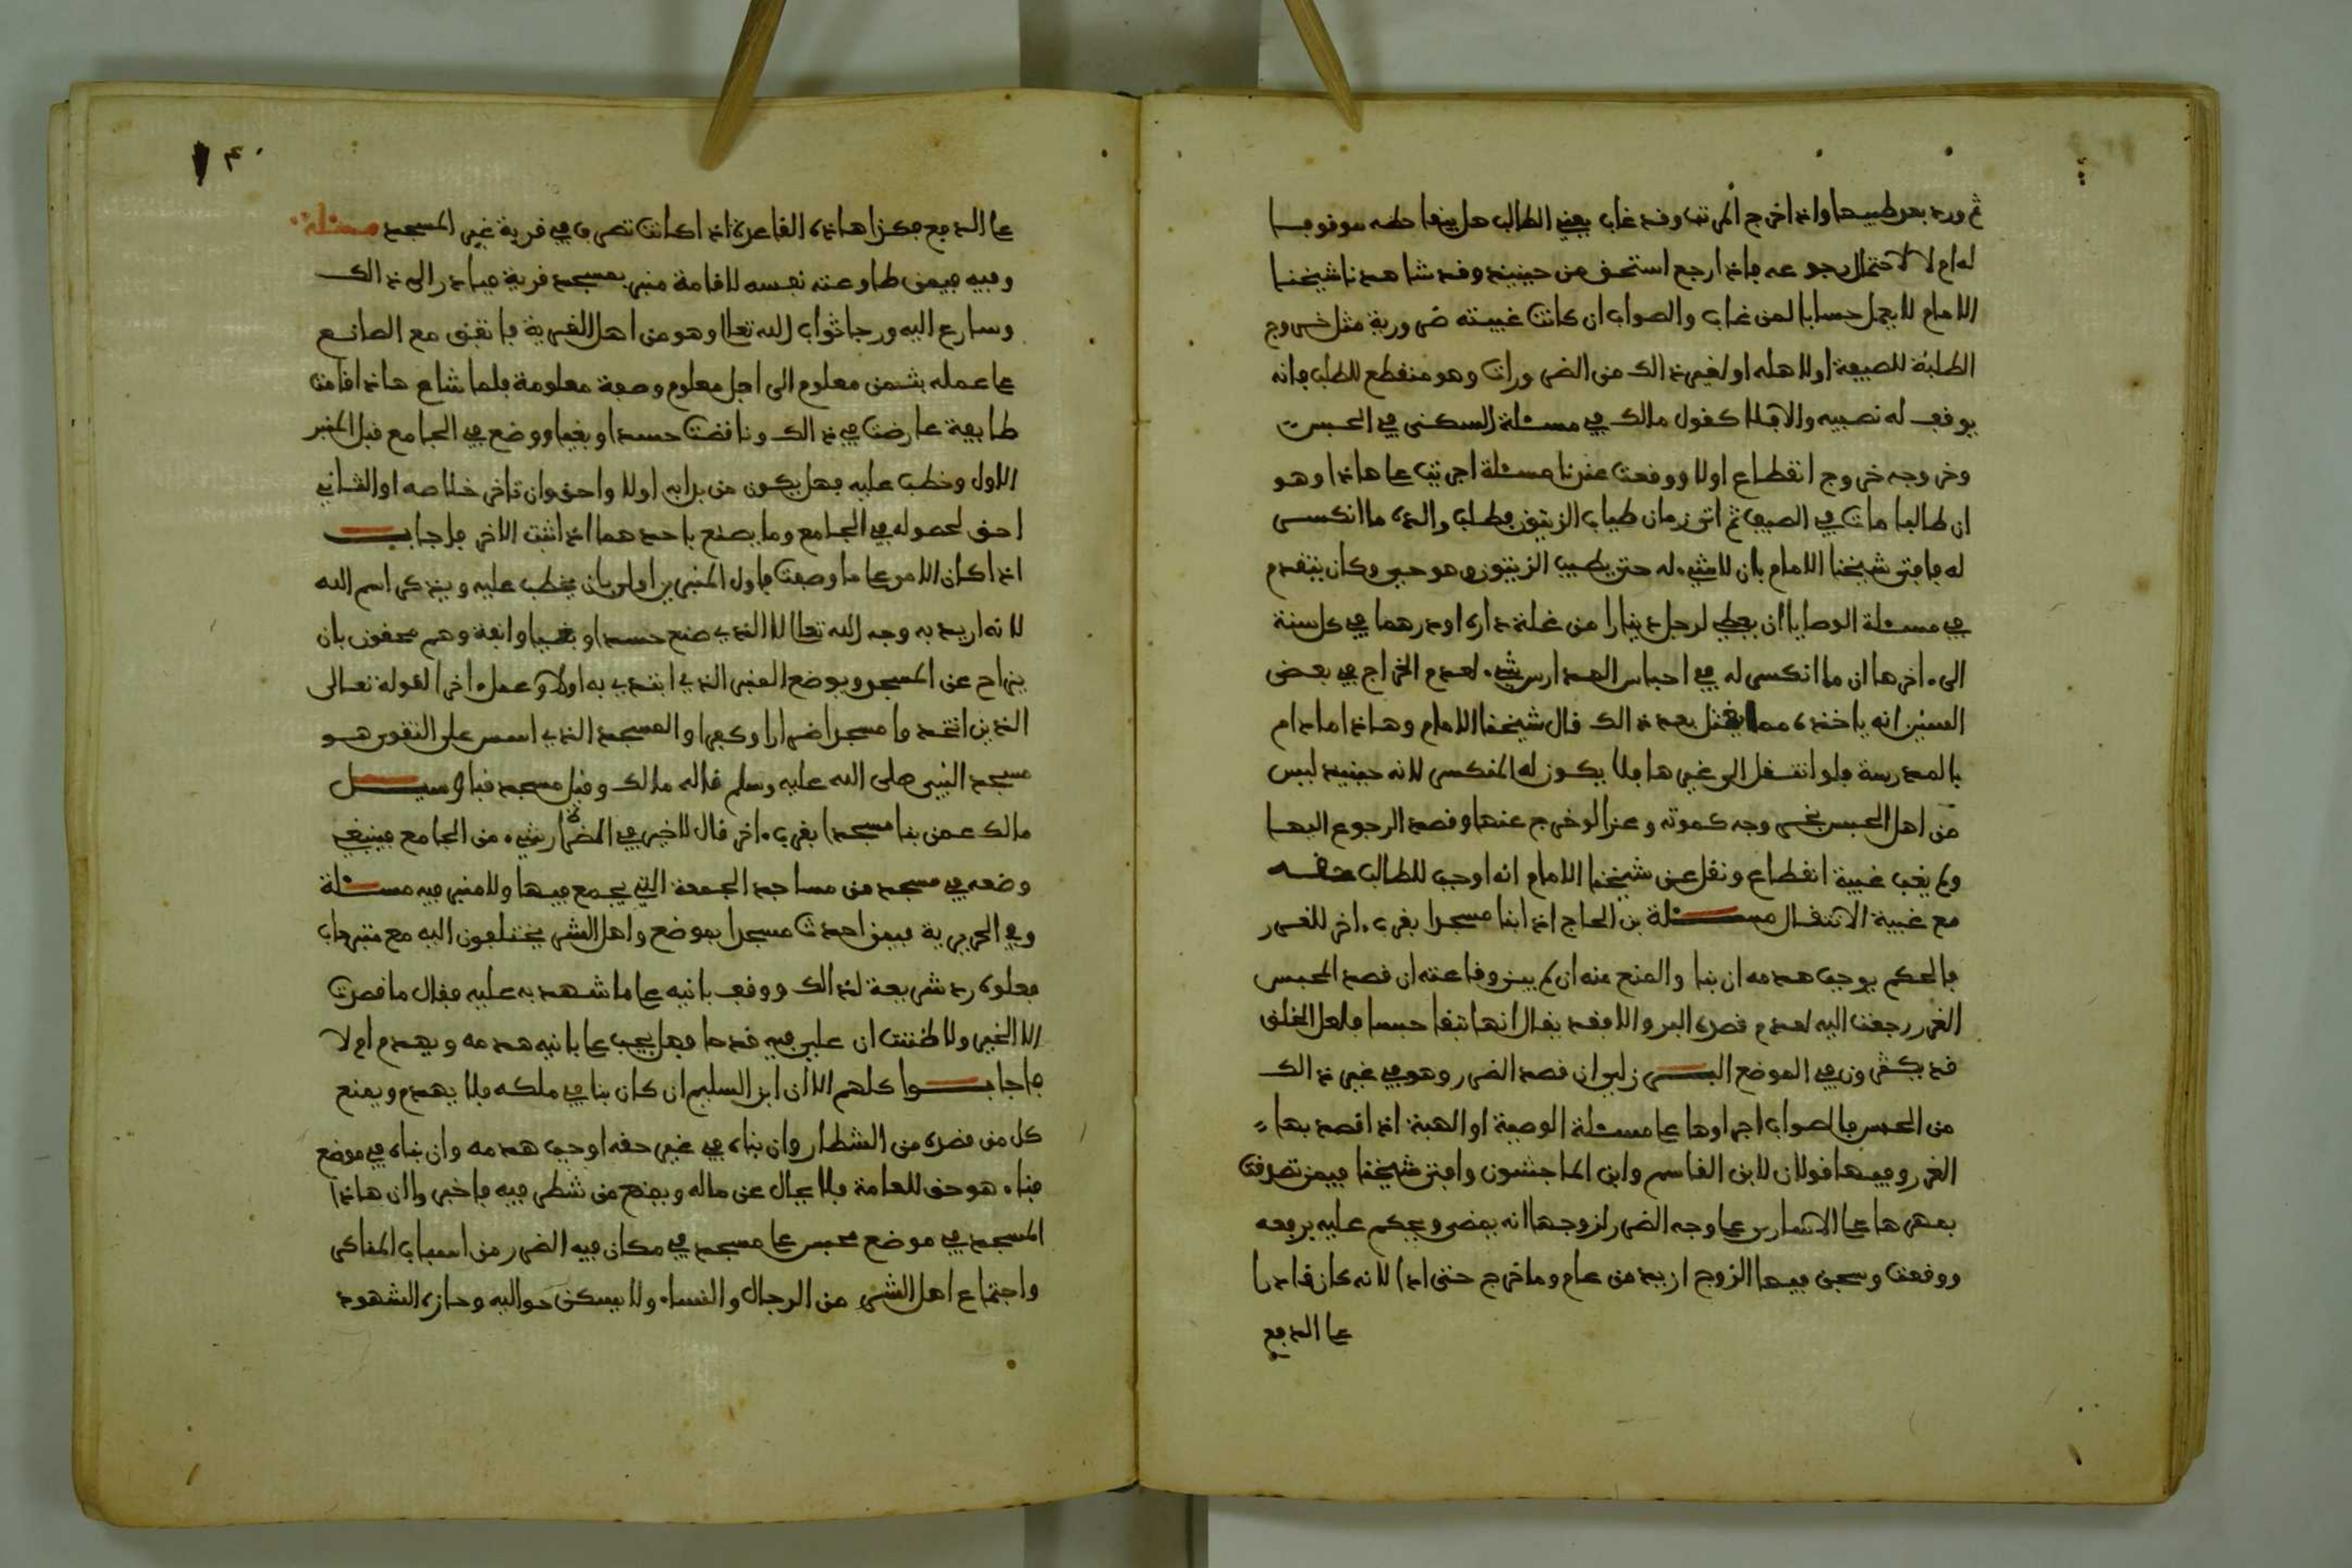 ثم ورد بعد طيبها واذا اخرج المرتب وقد غاب بعض الطالب هل يبقا حظه موقوفا
له ام لا لاحتمال رجوعه فاذا رجع استحق من حينيذ وقد شاهدنا شيخنا
الامام لا يجعل حسابا لمن غاب والصواب ان كانت غيبته ضرورية مثل خروج
الطلبة للصيفة اولاهله او لغير ذالك من الضرورات وهو منقطع للطلب فانه
يوقف له نصيبه والا فلا كقول مالك في مسئلة السكنى في الحبس
وخروجه خروج انقطاع اولا ووقعت عندنا مسئلة اجريت على هاذا وهو
ان طالبا مات في الصيف ثم اتى زمان طياب الزيتون فطلب والده ما انكسر
له فافتى شيخنا الامام بان لا شيء له حتى يطيب الزيتون وهو حي وكان يتقدم
في مسئلة الوصايا ان يعطى لرجل دينارا من غلة داره او درهما في كل سنة
الى اخرها ان ما انكسر له في احباس المدارس شيء لعدم الخراج في بعض
السنين انه ياخذه مما يغتل بعد ذالك قال شيخنا الامام وهاذا ما دام
بالمدرسة فلو انتقل الى غيرها فلا يكون له المنكسر لانه حينيذ ليس
من اهل الحبس بخروجه كموته وعندا لو خرج عنها وقصد الرجوع اليها
ولم يغب غيبة انقطاع ونقل عن شيخنا الامام انه اوجب للطالب حقه
مع غيبة الانتقال مسئلة بن الحاج اذا بنا مسجدا بقرب اخر للضرر
فالحكم يوجب هدمه ان بنا والمنع منه ان لم يبن وقاعته ان قصد المحبس
الضرر رجعت اليه لعدم قصده البر والا فقد يقال انها تبقا حبسا ولعل الخلق
قد يكثرون في الموضع البرزلي ان قصد الضرر وهو في غير ذالك
من الحبس فالصواب اجراوها على مسئلة الوصية او الهبة اذا قصد بها
الضرر وفيها قولان لابن القاسم وابن الماجشون وافتى شيخنا فيمن تصدقت
بمهرها على الاسارى على وجه الضرر لزوجها انه يمضي ويحكم عليه بدفعه
ووقعت وسجن فيها الزوج ازيد من عام وما خرج حتى ادا لانه كان قادرا
على الدفع
على الدفع فكذا هاذه القاعدة اذا كانت تصرف في قربة غير المسجد مسئلة
وفيه فيمن طاوعته نفسه لاقامة منبر بمسجد قرية فبادر الى ذالك
وسارع اليه ورجا ثواب الله تعالى وهو من اهل القرية فاتفق مع الصانع
على عمله بثمن معلوم الى اجل معلوم وصفة معلومة فلما شاع هاذا قامت
طايفة عارضت في ذالك وناقضت حسدا وبغيا ووضع في الجامع قبل المنبر
الاول وخطب عليه فهل يكون من بدا به اولا واحق وان تاخر خلاصه او الثاني
احق لحصوله في الجامع وما يصنع باحدهما اذا ثبت الاخر فاجاب
اذا كان الامر على ما وصفت فاول المنبرين اولى بان يخطب عليه ويذكر اسم الله
لانه اريد به وجه الله تعالى لا الذي صنع حسدا وبغيا وانفة وهم محقون بان
يزاح عن المسجد ويوضع المنبر الذي ابتدي به اولا وعمل اخرا لقوله تعالى
الذين اتخذوا مسجدا ضرارا وكفرا والمسجد الذي اسس على التقوى هو
مسجد النبي صلى الله عليه وسلم قاله مالك وقيل مسجد قبا وسيل
مالك عمن بنا مسجدا بقرب اخر قال لا خير في الضرار شيء من الجامع فينبغي
وضعه في مسجد من مساجد الجمعة التي يجمع فيها ولا منبر فيه مسئلة
وفي الحريرية فيمن احدث مسجدا بموضع واهل الشر يختلفون اليه مع
رد شريعة لذالك ووقف بانيه على ما شهد به عليه فقال ما قصدت
الا الخير ولا ظننت ان علي فيه قدحا فهل يجب على بانيه هدمه ويهدم ام لا
فاجابوا كلهم الا ان ابن السليم ان كان بنا في ملكه فلا يهدم ويمنع
كل من قصده من الشطار وان بناه في غير حقه اوجب هدمه وان بناه في موضع
فناء هو حق للعامة فلا يحال عن حاله ويمنع من شطر فيه فاخبر والان هاذا
المسجد في موضع محبس على مسجد في مكان فيه الضرر من اسباب المناكر
واجتماع اهل الشر من الرجال والنساء ولا يسكن حواليه وحازه الشهود